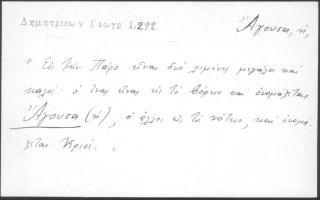 Δημητριέων Γεωγρ 1.292
Ἄγουσα, ἡ,
" Εἰς τὴν Πάρο εἶναι δυὸ λιμένες μεγάλοι καὶ
καλοί· ὁ ἕνας εἶναι εἰς τὸ βόρειο καὶ ὀνομάζεται
Ἄγουσα (ἡ), ὁ ἄλλος εἰς τὸ νότειο, καὶ ὀνομά-
ζεται Τριό. "